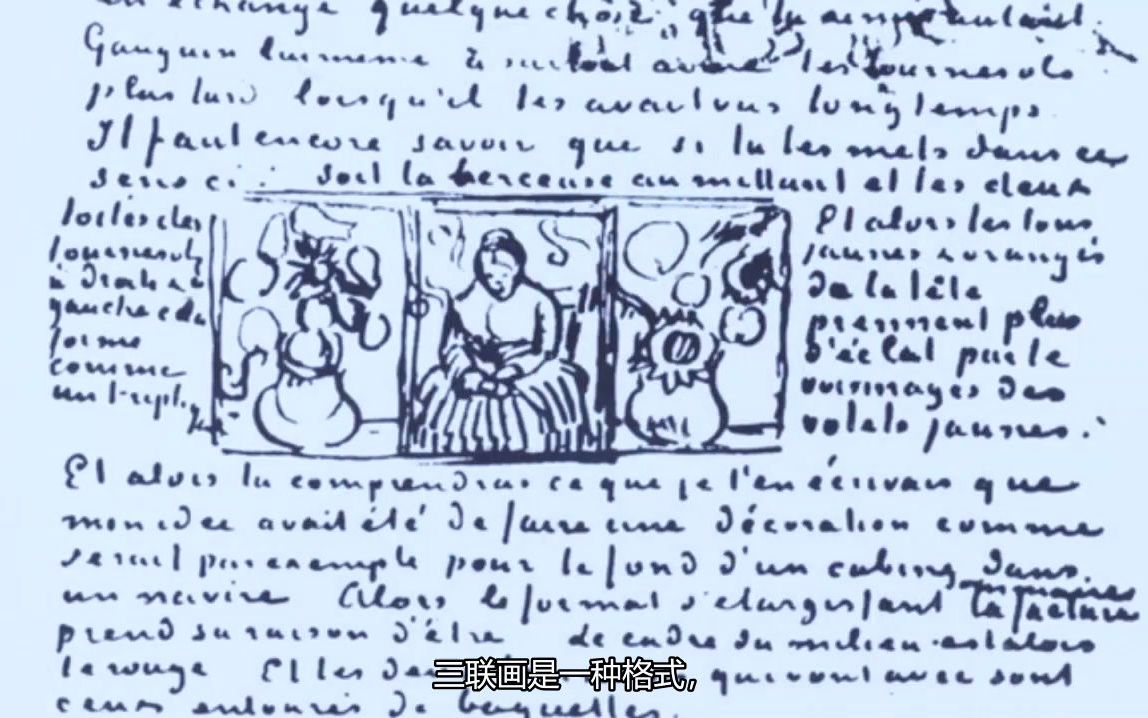 en échange quelque chose, que tu
Gauguin lui meme surtout aimé les tournesols
plus tard lorsqu'il les avait vus longtemps.
Il faut encore savoir que si tu les mets dans ce
sens ci : soit la berceuse au millant et les deux
toiles des
tournesols
à droite et
gauche cela
forme
comme
un triptique
Et alors les tons
jaunes & orangés
de la tête
prennent plus
d'éclat par le
voisinages des
volets jaunes.
Et alors tu comprendras ce que je t'en écrivais que
mon idée avait été de faire une décoration comme
serait par exemple pour le fond d'un cabine dans
un navire Alors le format s'elargissant la facture
sommaire
prend sa raison d'être le cadre du milieu est alors
le rouge Et les qui vont avec sont
ceux entourés de baguettes.
三联画是一种格式,